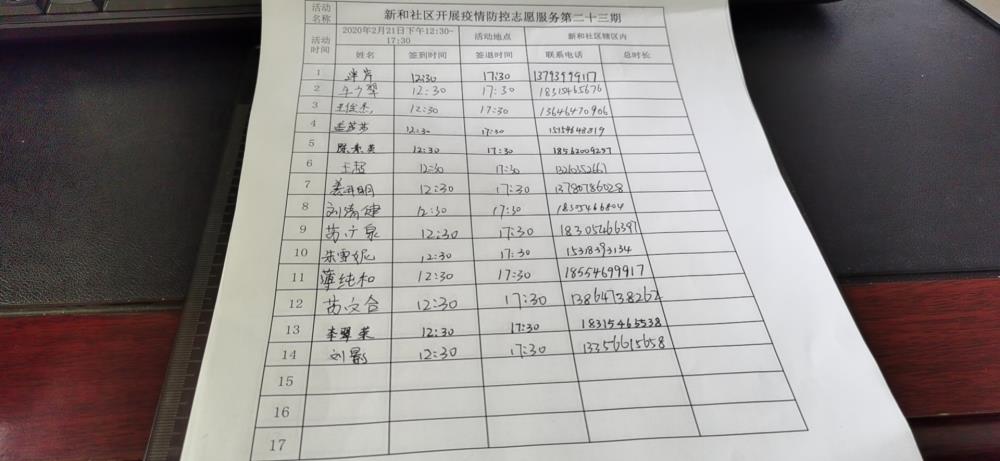 活动名称 新和社区开展疫情防控志愿服务第二十三期
活动时间 2020年2月21日下午12:30-17:30 活动地点 新和社区辖区内
姓名 签到时间 签退时间 联系电话 总时长
1 12:30 17:30 13793999117
2 12:30 17:30 18315465676
3 王俊杰 12:30 17:30 13646470906
4 12:30 17:30 15154648819
5 陈素英 12:30 17:30 18562009297
6 王超 12:30 17:30
7 姜开明 12:30 17:30 13780786028
8 刘清健 12:30 17:30 18305466804
9 苗广泉 12:30 17:30 18305466397
10 朱雪妮 12:30 17:30
11 薄纯和 12:30 17:30 18554699917
12 苗文合 12:30 17:30 13864738262
13 李翠英 12:30 17:30 18315465538
14 刘影 12:30 17:30 13356615658
15
16
17